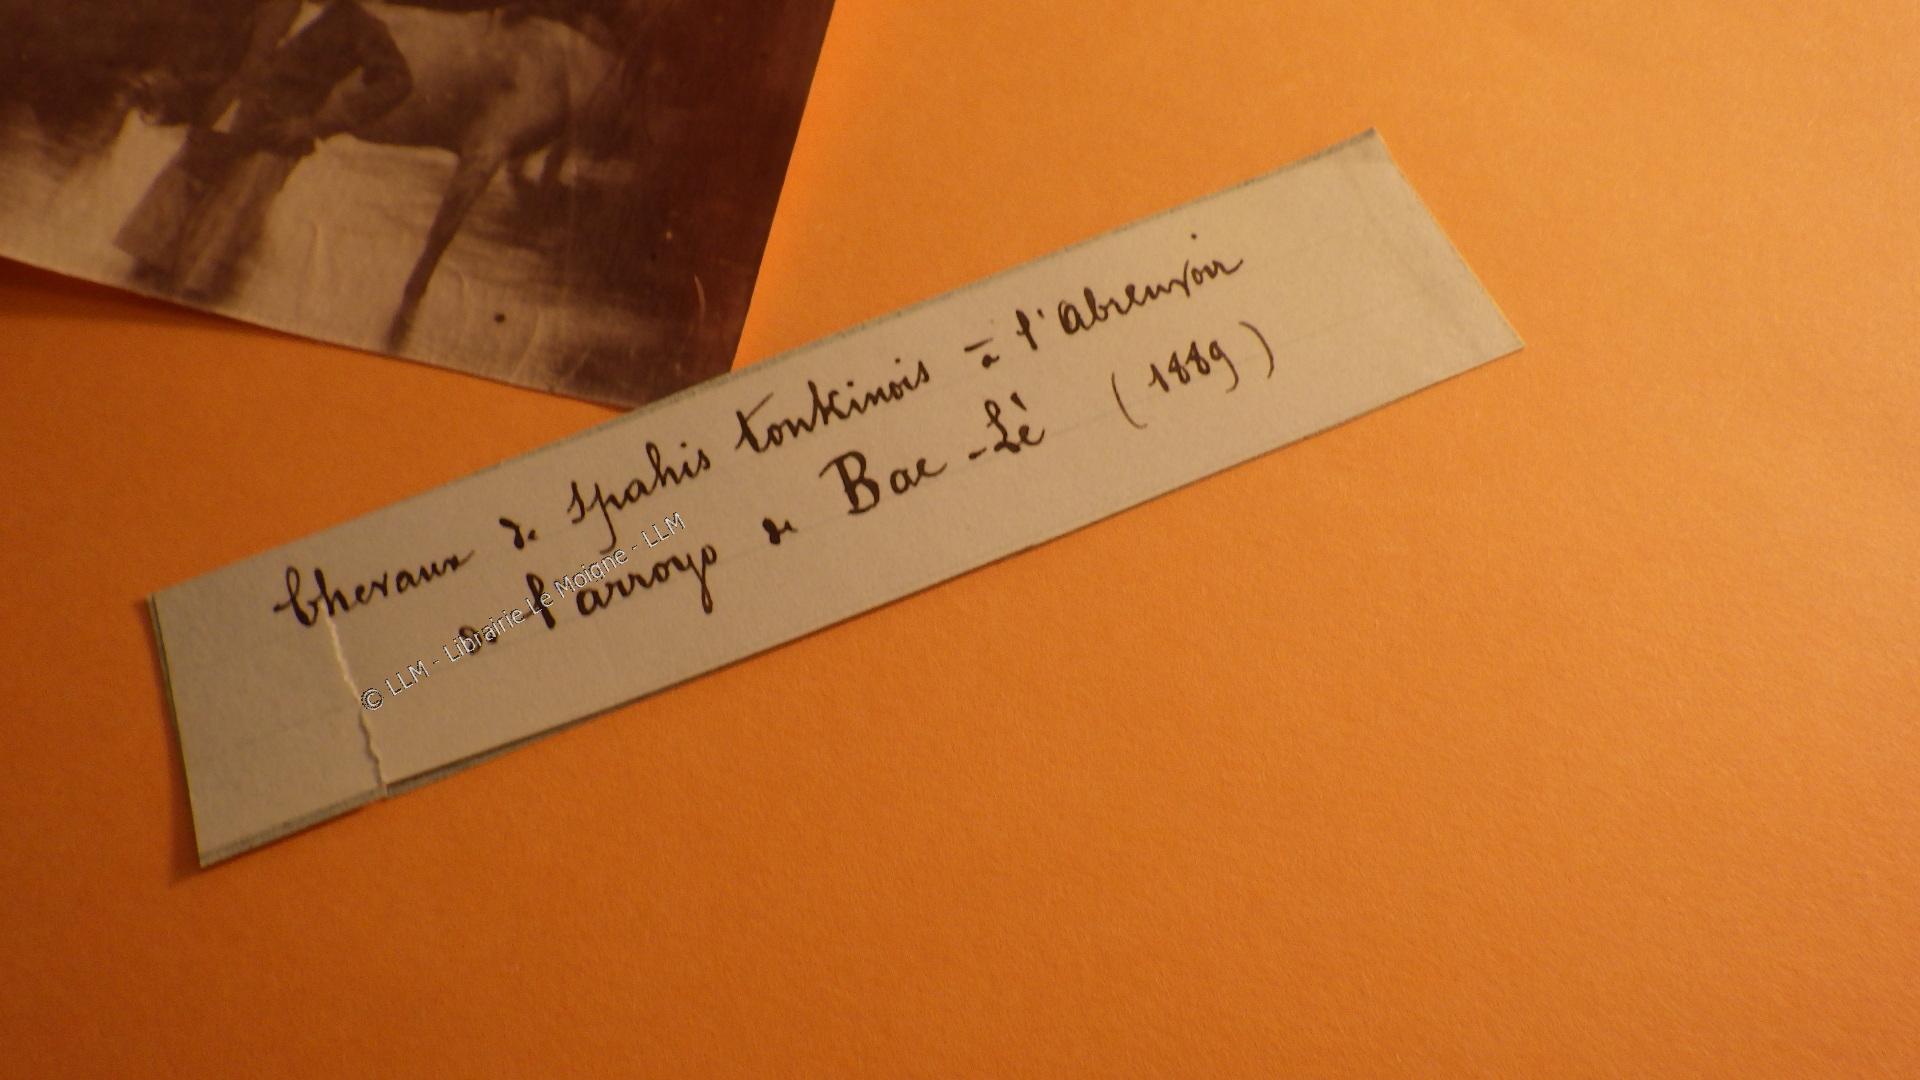 Chevaux de spahis tonkinois à l'abreuvoir
de l'arroyo de Bac-Lè (1889)
© LLM - Librairie Le Moigne - LLM